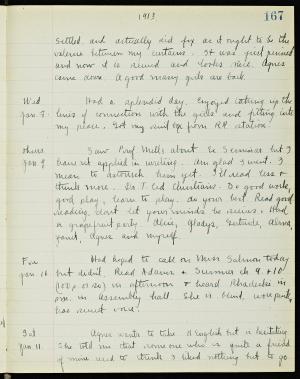 1913
167
settled and actually did fix as it ought to be the
valence between my curtains. It was just pinned
and now it is sewed and looks nice. Agnes
came down. A good many girls are back.
Wed
Jan. 8.
Had a splendid day. Enjoyed taking up the
lines of connection with the girls and fitting into
my place. Got my suit case from RR station.
Thurs
Jan 9
Saw Prof Mills about Ec Seminar but I
hadn't applied in writing. Am glad I went. I
mean to astonish him yet. I'll read less &
think more. Dr. T. led Christians. Do good work,
good play, learn to play. do your best. Read good
reading, don't let your minds be
a grapefruit party. Alice, Gladys, Gertrude, Alma,
Janet, Agnes and myself.
Fri
Jan. 10
Had hoped to call on Miss Salmon today
but didn't. Read Adams & Sumner ch 9 + 10
in afternoon & heard
p.m. in assembly hall. She is blind,
has sweet voice.
Sat
Jan 11.
Agnes wants to take English but is hesitating.
She told me that someone who is quite a friend
of mine used to think I liked nothing but to go